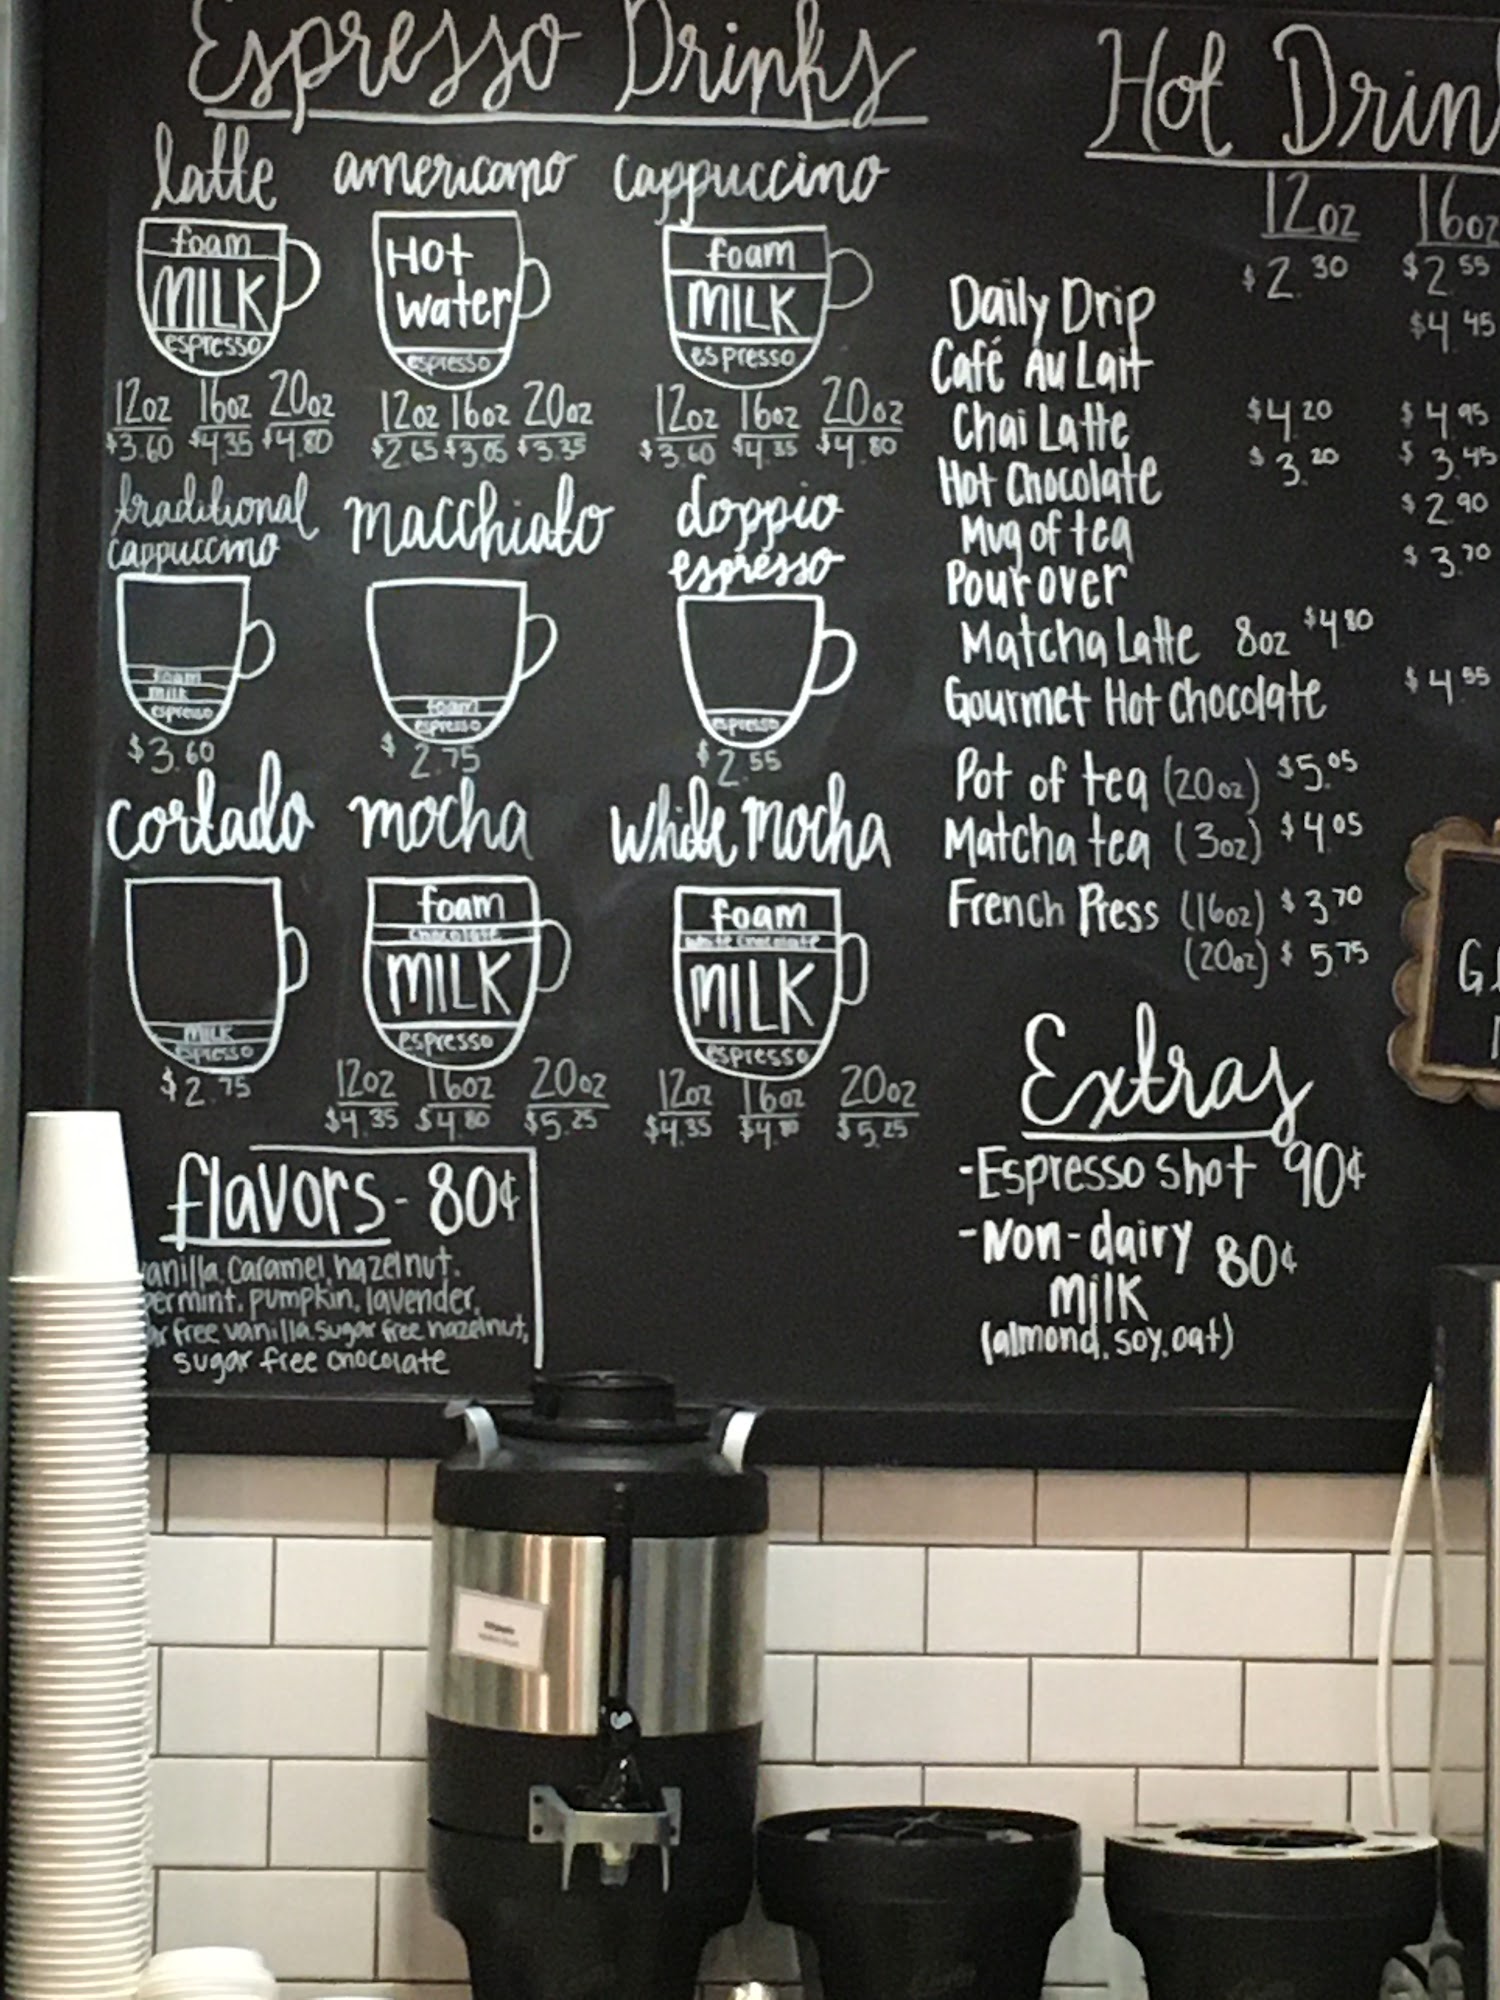 Espresso Drinks
latte americano cappuccino
foam
MILK
espresso
Hot
water
espresso
foam
MILK
espresso
12oz 16oz 20oz
$3.60 $4.35 $4.80
12oz 16oz 20oz
$2.65 $3.05 $3.35
12oz 16oz 20oz
$3.60 $4.35 $4.80
traditional
cappuccino
macchiato
doppio
espresso
foam
milk
espresso
$3.60
foam
espresso
$2.75
espresso
$2.55
cortado mocha white mocha
MILK
espresso
$2.75
foam
chocolate
MILK
espresso
12oz 16oz 20oz
$4.35 $4.80 $5.25
foam
white chocolate
MILK
espresso
12oz 16oz 20oz
$4.35 $4.80 $5.25
flavors - 80¢
anilla, caramel, hazelnut,
ermint, pumpkin, lavender,
ar free vanilla, sugar free hazelnut,
sugar free chocolate
Hot Drin
12oz 16oz
$2.30 $2.55
Daily Drip
$4.45
Café Au Lait
Chai Latte $4.20 $4.95
Hot Chocolate $3.20 $3.45
Mug of tea $2.90
Pour over $3.70
Matcha Latte 8oz $4.80
Gourmet Hot Chocolate $4.55
Pot of tea (20oz) $5.05
Matcha tea (3oz) $4.05
French Press (16oz) $3.70
(20oz) $5.75
Extras
-Espresso shot 90¢
-Non-dairy 80¢
milk
(almond, soy, oat)
G